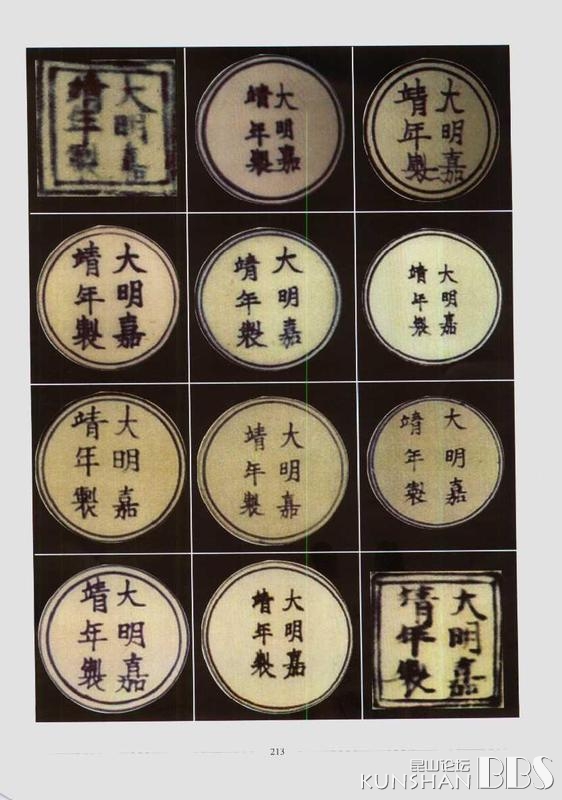 大明嘉
靖年製
大明嘉
靖年製
大明嘉
靖年製
大明嘉
靖年製
大明嘉
靖年製
大明嘉
靖年製
大明嘉
靖年製
大明嘉
靖年製
大明嘉
靖年製
大明嘉
靖年製
大明嘉
靖年製
大明嘉
靖年製
213
昆山论坛
KUNSHAN BBS